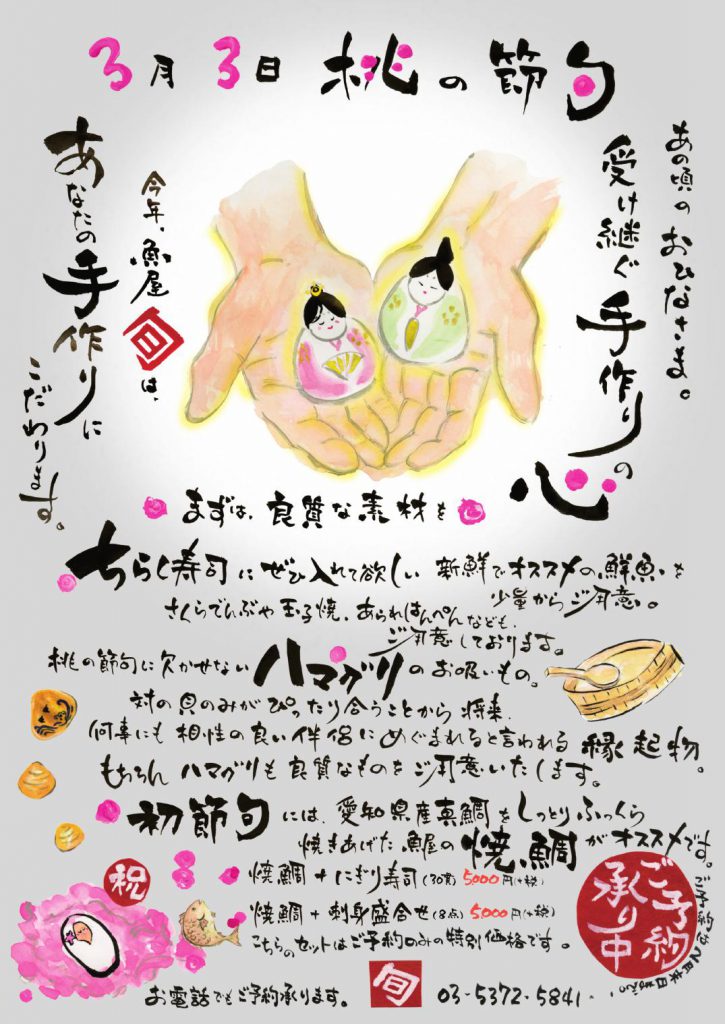 3月3日 桃の節句
あの頃のおひなさま。
受け継ぐ手作りの心
今年、魚屋旬は、
あなたの手作りに
こだわります。
まずは、良質な素材を
ちらし寿司にぜひ入れて欲しい 新鮮でオススメの鮮魚を
少量からご用意。
さくらでんぶや玉子焼、あられはんぺんなども、
ご用意しております。
桃の節句に欠かせないハマグリのお吸いもの。
対の貝のみがぴったり合うことから将来、
何事にも相性の良い伴侶にめぐまれると言われる縁起物。
もちろんハマグリも良質なものをご用意いたします。
初節句には、愛知県産真鯛をしっとりふっくら
焼きあげた魚屋の焼鯛がオススメです。
焼鯛+にぎり寿司(30貫)5000円(+税)
焼鯛+刺身盛合せ(8点)5000円(+税)
こちらのセットはご予約のみの特別価格です。
祝
ご予約承り中
ご予約は2月末日まで
お電話でもご予約承ります。 旬 03-5372-5841